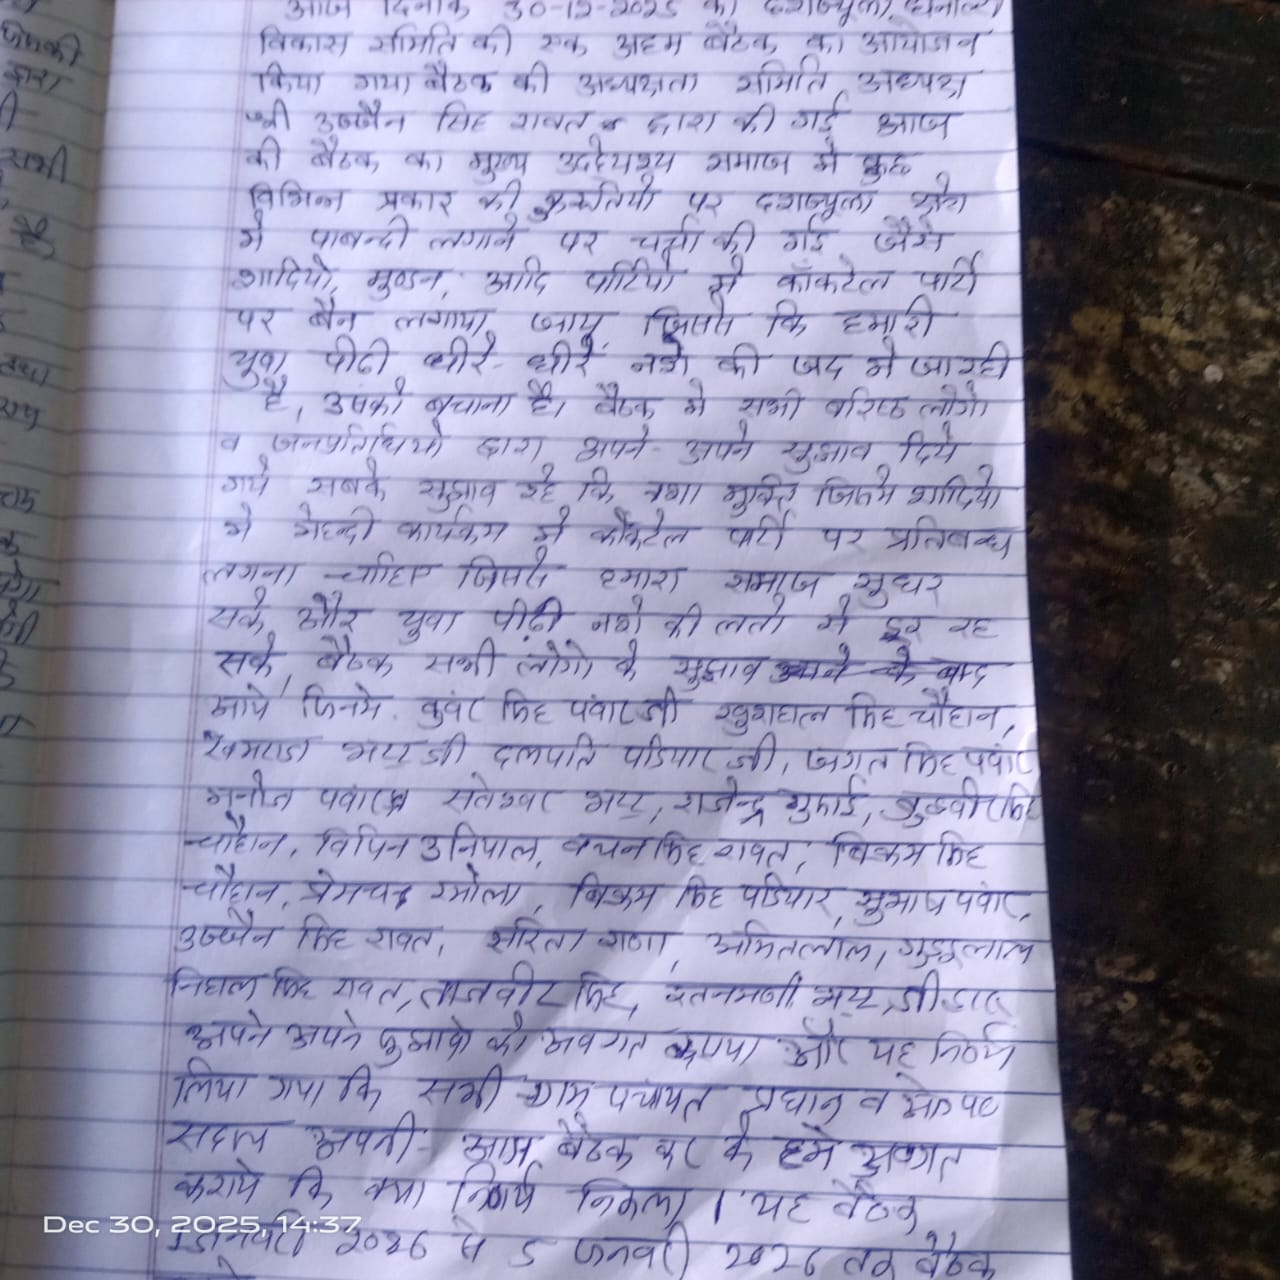 आज दिनांक 30-12-2025 को दशज्यूला
विकास समिति की एक अहम बैठक का आयोजन
किया गया बैठक की अध्यक्षता समिति अध्यक्ष
श्री उज्जैन सिंह रावत द्वारा की गई आज
की बैठक का मुख्य उद्देश्य समाज मे कुछ
विभिन्न प्रकार की कुरूतियो पर दशज्यूला क्षेत्र
मे पाबन्दी लगाने पर चर्चा की गई जैसे
शादियो, मुण्डन, आदि पार्टियो मे कॉकटेल पार्टी
पर बैन लगाया जाय, जिससे कि हमारी
युवा पीढी धीरे-धीरे नशे की जद मे जा रही
है, उसको बचाना है। बैठक मे सभी वरिष्ठ लोगो
व द्वारा अपने-अपने सुझाव दिये
गये सबके सुझाव रहे कि नशा मुक्ति जिसमे शादियो
मे मेहन्दी कार्यक्रम मे कॉकटेल पार्टी पर प्रतिबन्ध
लगना चाहिए जिससे हमारा समाज सुधर
सके, और युवा पीढी नशे की लतो से दूर रह
सके, बैठक सभी लोगो के सुझाव आने के बाद
आये जिनमे. कुवंर सिंह पंवार जी खुशहाल सिंह चौहान,
भट्ट जी दलपति पडियार जी, जगत सिंह पंवार
मनोज पंवार सतेश्वर भट्ट, राजेन्द्र गुसाई, सिंह
चौहान, विपिन उनियाल, वचन सिंह रावत, विक्रम सिंह
चौहान, प्रेमचन्द्र रमोला, विक्रम सिंह पडियार, सुभाष पंवार,
उज्जैन सिंह रावत, सरिता राणा, अमितलाल, गुड्डूलाल
निहाल सिंह रावत, ताजवीर सिंह, रतनमणी भट्ट जी द्वारा
अपने अपने सुझावो को अवगत कराया और यह निर्णय
लिया गया कि सभी ग्राम पंचायत प्रधान व क्षेत्र पं०
सदस्य अपनी-आम बैठक कर के हमे अवगत
कराये कि क्या निर्णय निकला। यह बैठक
1 जनवरी 2026 से 5 जनवरी 2026 तक बैठक
Dec 30, 2025, 14:37